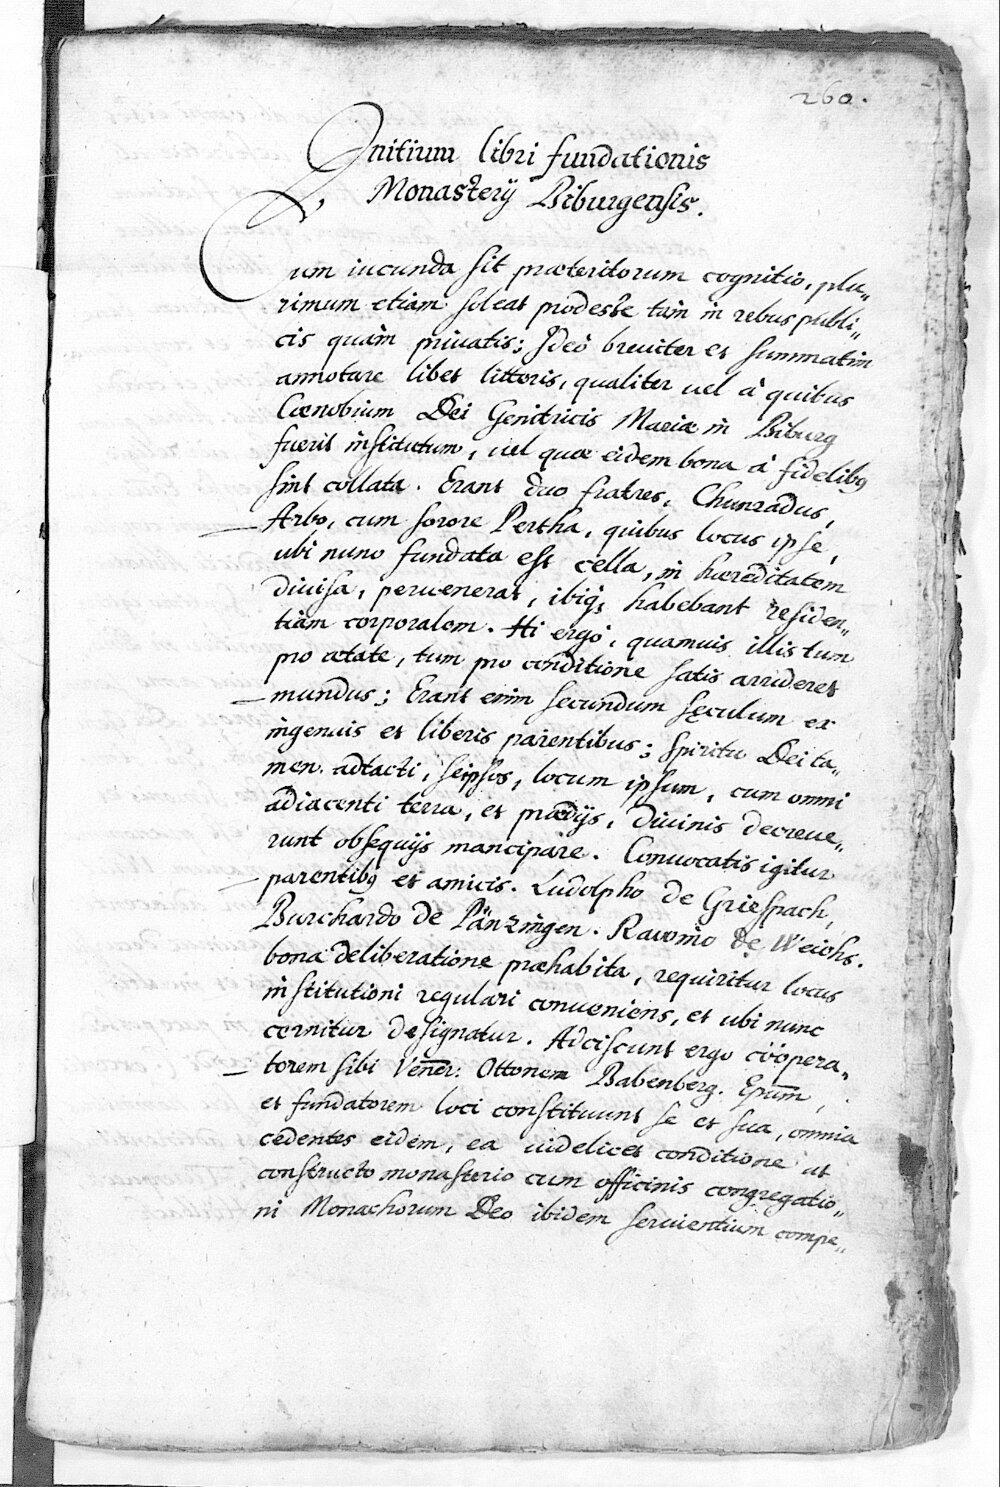 260.
Initium libri fundationis
Monasterÿ Biburgensis.
Cum iucunda sit præteritorum cognitio, plu„
rimum etiam soleat prodesse tàm in rebus publi„
cis quàm priuatis; Ideò breuiter et summatim
annotare libet litteris, qualiter uel à quibus
Cœnobium Dei Genitricis Mariæ in Biburg
fuerit institutum, uel quæ eidem bona à fidelibꝰ
sint collata. Erant duo fratres, Chunradus,
Arbo, cum sorore Pertha, quibus locus ipse,
ubi nunc fundata est cella, in hæreditatem
diuisa, peruenerat, ibiqꝫ habebant residen„
tiam corporalem. Hi ergò, quamuis illis tum
pro ætate, tum pro conditione satis arrideret
mundus; Erant enim secundum sęculum ex
ingenuis et liberis parentibus; Spiritu Dei ta„
men adtacti, seipsos, locum ipsum, cum omni
adiacenti terra, et prædÿs, diuinis decreue„
runt obsequÿs mancipare. Conuocatis igitur
parentibꝰ et amicis. Ludolpho de Griespach,
Burchardo de Pänzingen. Rauonio de Weichs.
bona deliberatione præhabita, requiritur locus
institutioni regulari conueniens, et ubi nunc
cernitur designatur. Adciscunt ergo coöpera„
torem sibi Vener̄: Ottonem Babenberg. Epūm,
et fundatorem loci constituunt se et sua, omnia
cedentes eidem, ea uidelicet conditione ut
constructo monasterio cum officinis congregatio„
ni Monachorum Deo ibidem seruientium compe„